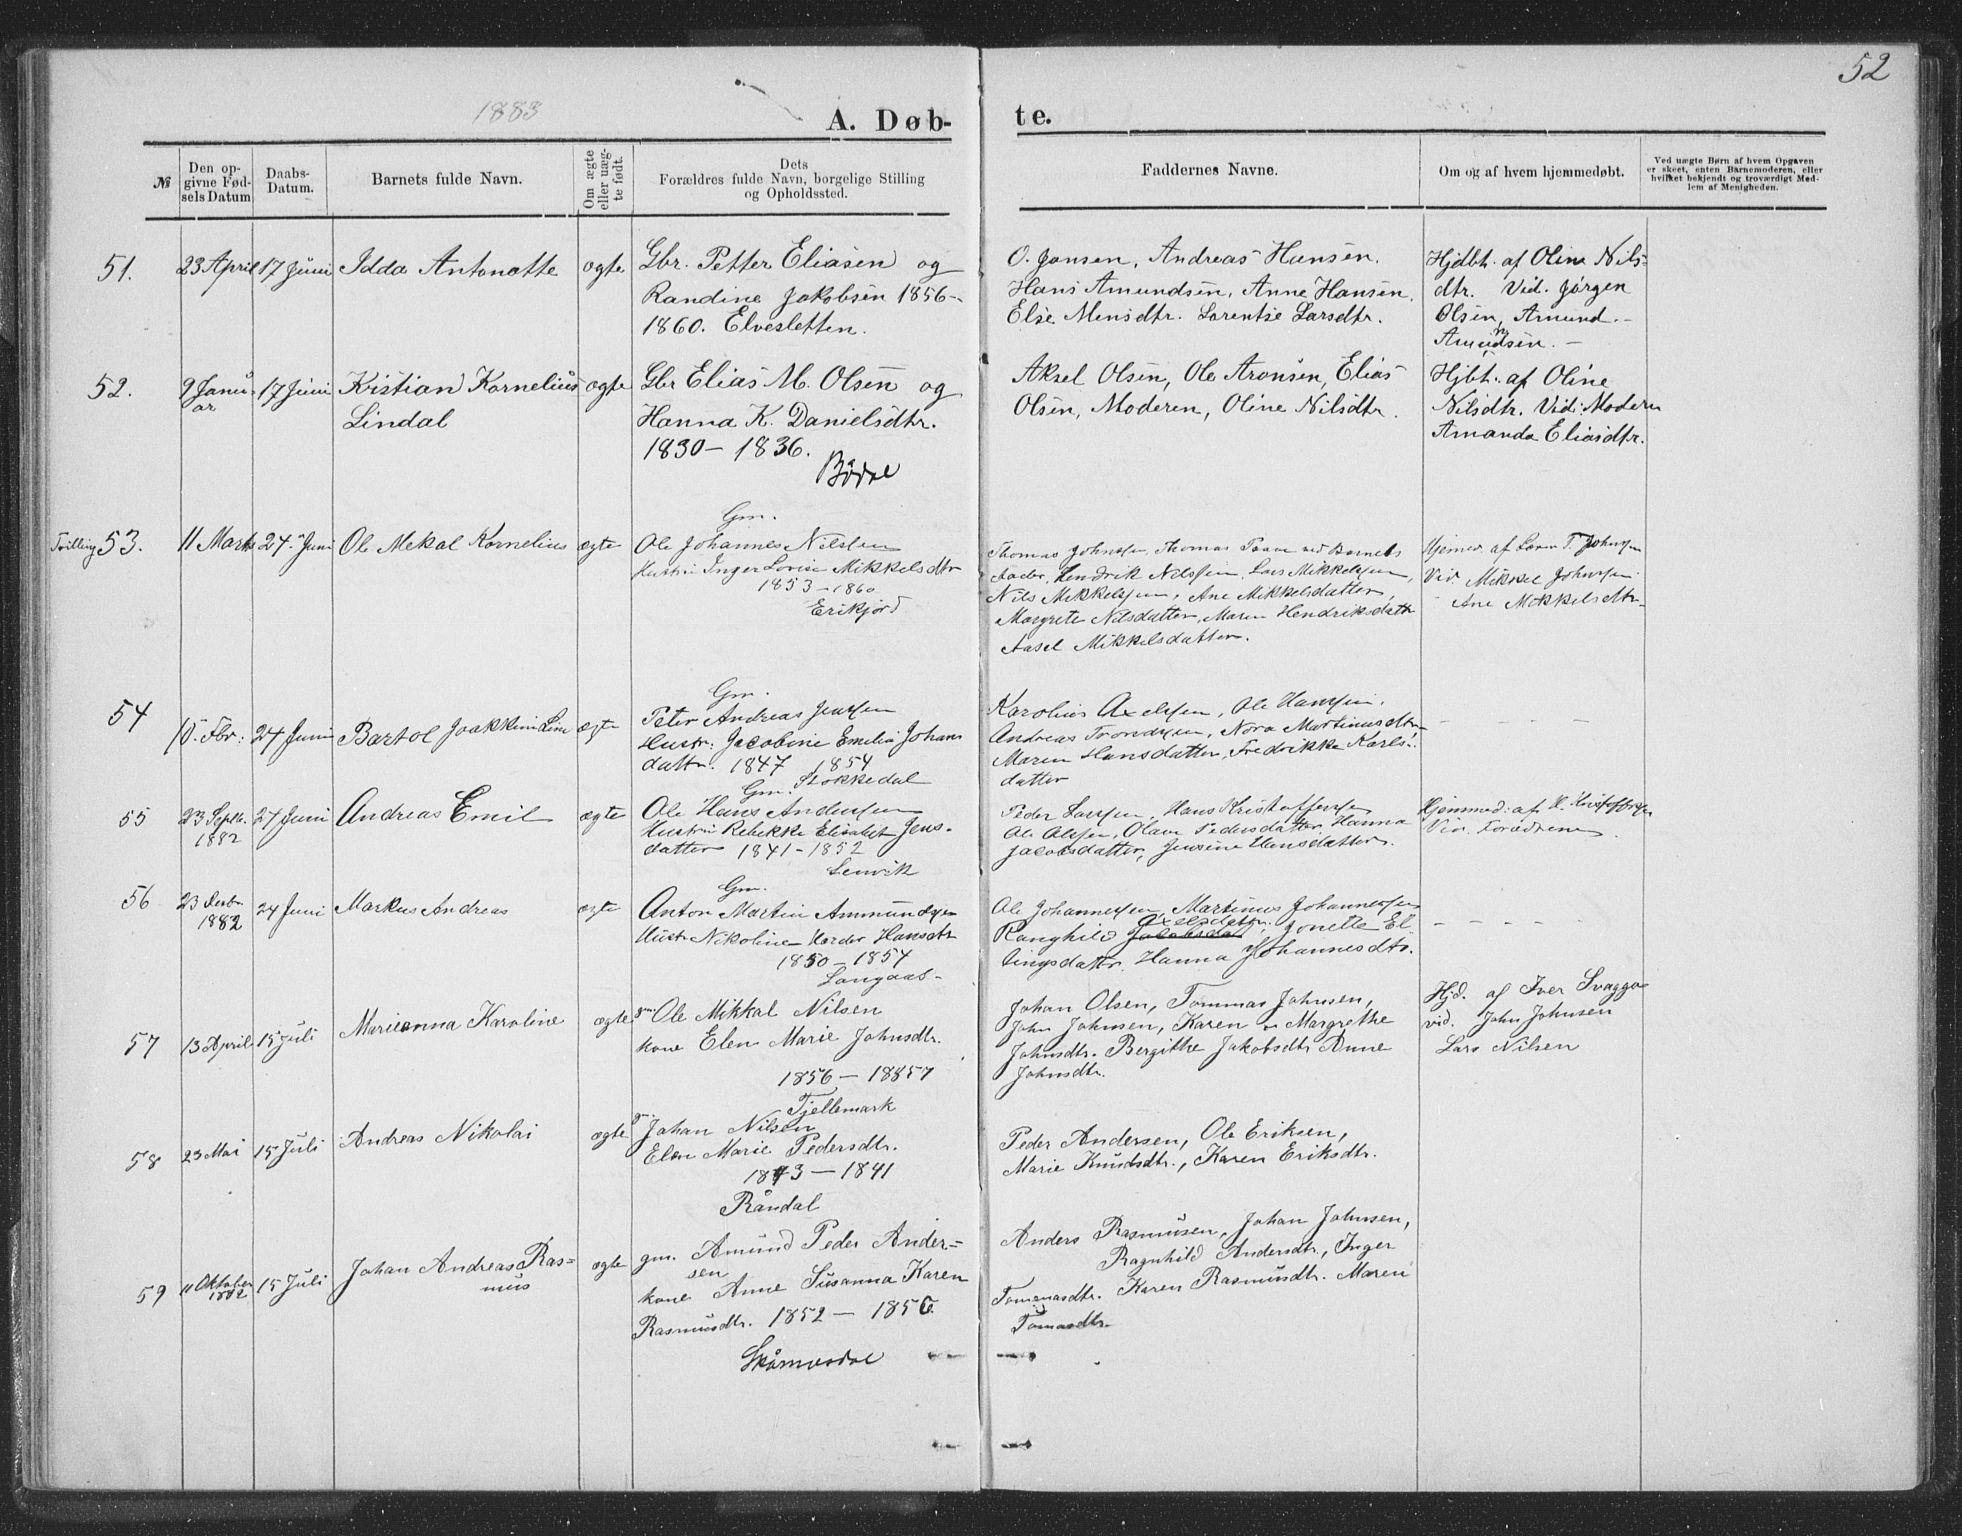 52
1883
A. Døb-
te.
№
Den op-
givne Fød-
sels Datum
Daabs-
Datum.
Barnets fulde Navn.
Om ægte
eller uæg-
te født.
Dets
Forældres fulde Navn, borgelige Stilling
og Opholdssted.
Faddernes Navne.
Om og af hvem hjemmedøbt.
Ved uægte Børn af hvem Opgaven
er skeet, enten Barnemoderen, eller
hvilket bekjendt og troværdigt Med-
lem af Menigheden.
51. 23 April 17 Juni Idda Antonette ægte Gbr. Petter Eliasen og
Randine Jakobsen 1856-
1860. Elvesletten.
O. Jansen, Andreas Hansen.
Hans Amundsen, Anne Hansen.
Else Mensdtr. Lorentse Larsdtr.
Hjdbt. af Oline Nils-
dtr. Vid. Jørgen
Olsen, Amund
Amundsen. -
52. 9 Janu-
ar
17 Juni Kristian Kornelius
Lindal
ægte Gbr Elias M. Olsen og
Hanna K. Danielsdtr.
1830 - 1836.
Bødal
Aksel Olsen, Ole Aronsen, Elias
Olsen, Moderen, Oline Nilsdtr.
Hjbt. af Oline
Nilsdtr. Vid: Modern
Amanda Eliasdtr.
Tvilling 53. 11 Marts 24. Juni Ole Mekal Kornelius ægte
Gm.
Ole Johannes Nilsen
Hustru Inger Lovise Mikkelsdtr
1853 - 1860
Erikjord
Thomas Johnsen, Thomas ved Barnets
Fader, Hendrik Nilssen, Lars Mikkelsen,
Nils Mikkelsen, Ane Mikkelsdatter,
Margrete Nilsdatter, Maren Hendriksdattr
Aasel Mikkelsdatter.
Hjemmed. af T. Johnsen
Vid. Mikkel Johnsen
Ane Mikkelsdtr.
54 10. Fbr: 24 Juni Bartol Joakkim ægte
Gm.
Peter Andreas Jensen
Hustr: Jacobine Emelie Johans
dattr. 1847 1854
Stokkedal
Karolius Axelsen, Ole Hansen,
Andreas Trondsen, Nora Martinusdtr
Maren Hansdatter, Fredrikke Karls-
datter
- - - -
55 23 Septb.
1882
24 Juni Andreas Emil ægte
Gm.
Ole Hans Andersen
Hustru Rebekke Elisabet Jens-
datter 1841 - 1852
Lenvik
Peder Larsen, Hans Kristoffersen
Ole Olsen, Olava Pedersdatter, Hanna
Jacobsdatter, Jensine Hansdatter.
Hjemmed: af H. Kristoffersen
Vid. Forældrene.
56 23
1882
24 Juni Markus Andreas ægte
Gm.
Anton Martin Ammundsen
Hustr Nikoline Hansdtr
1850 - 1854
Langaas-
Ole Johannessen, Martinus Johannessen
Axelsdattr.
Ranghild Jacobsdat, Jonette El
lingsdattr. Hanna Johannesdtr.
- - - -
57 13 April 15 Juli Marieanna Karoline ægte
gm. Ole Mikkal Nilsen
kone Elen Marie Johnsdtr.
1856 - 18857
Tjellemark
Johan Olsen, Tommas Johnsen,
John Johnsen, Karen og Margrethe
Johnsdtr. Bergithe Jakobsdtr Anne
Johnsdtr.
Hjd. af Iver Svaggo
vid. John Johnsen
Lars Nilsen
58 23 Mai 15 Juli Andreas Nikolai ægte
gm. Johan Nilsen
Elen Marie Pedersdtr.
1843 - 1841
Råndal
Peder Andersen, Ole Eriksen,
Marie Knudsdtr., Karen Eriksdtr.
59 11 Oktober
1882
15 Juli Johan Andreas Ras-
mus
ægte gm. Amund Peder Ander-
sen
kone Anne Susanna Karen
Rasmusdtr. 1852 - 1856
Skåmesdal
Anders Rasmusen, Johan Johnsen,
Ragnhild Andersdtr., Inger
Tommasdtr. Karen Rasmusdtr. Maren
Tomasdtr.